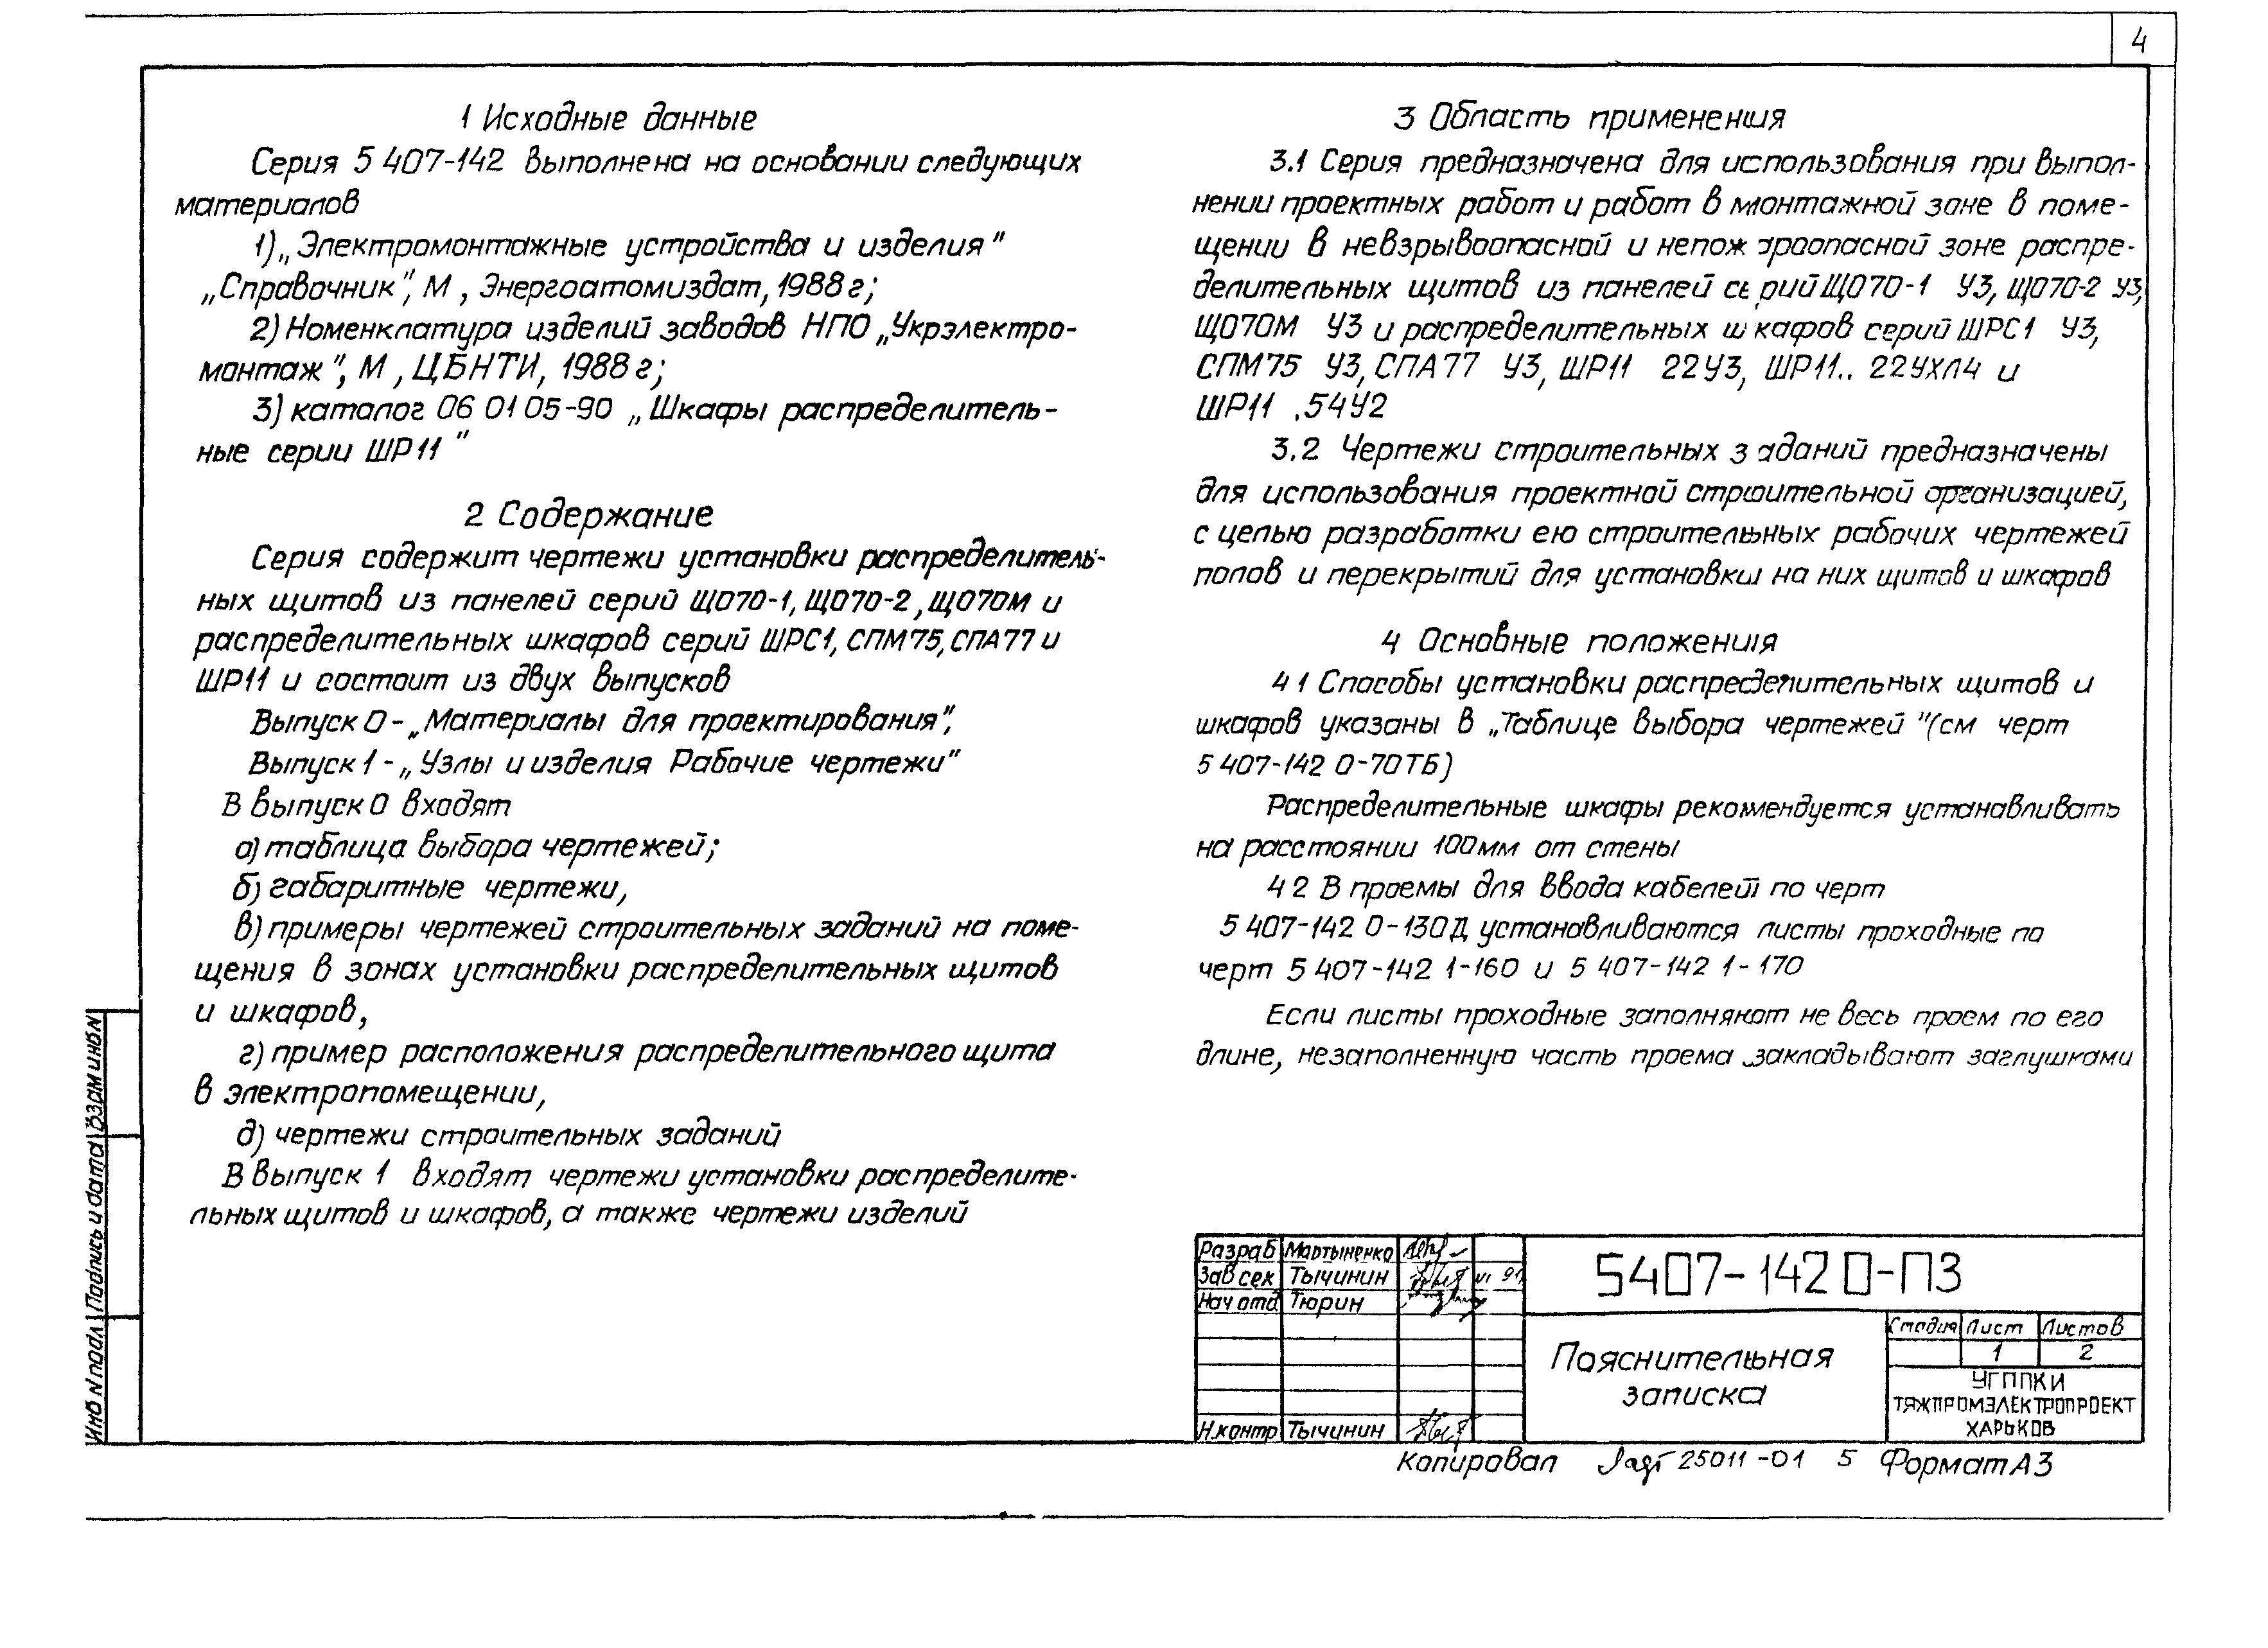 4
1 Исходные данные
Серия 5 407-142 выполнена на основании следующих
материалов
1) „Электромонтажные устройства и изделия"
„Справочник", М , Энергоатомиздат, 1988 г;
2) Номенклатура изделий заводов НПО „Укрэлектро-
монтаж", М , ЦБНТИ, 1988 г;
3) каталог 06 01 05-90 „Шкафы распределитель-
ные серии ШР11 "
2 Содержание
Серия содержит чертежи установки распределитель-
ных щитов из панелей серий ЩО70-1, ЩО70-2, ЩО70М и
распределительных шкафов серий ШРС1, СПМ75, СПА77 и
ШР11 и состоит из двух выпусков
Выпуск 0 - „Материалы для проектирования",
Выпуск 1 - „Узлы и изделия Рабочие чертежи"
В выпуск 0 входят
а) таблица выбора чертежей;
б) габаритные чертежи,
в) примеры чертежей строительных заданий на поме-
щения в зонах установки распределительных щитов
и шкафов,
г) пример расположения распределительного щита
в электропомещении,
д) чертежи строительных заданий
В выпуск 1 входят чертежи установки распределите-
льных щитов и шкафов, а также чертежи изделий
3 Область применения
3.1 Серия предназначена для использования при выпол-
нении проектных работ и работ в монтажной зоне в поме-
щении в невзрывоопасной и непожароопасной зоне распре-
делительных щитов из панелей серий ЩО70-1 У3, ЩО70-2 У3,
ЩО70М У3 и распределительных шкафов серий ШРС1 У3,
СПМ75 У3, СПА77 У3, ШР11 22У3, ШР11.. 22УХЛ4 и
ШР11 .54У2
3.2 Чертежи строительных заданий предназначены
для использования проектной строительной организацией,
с целью разработки ею строительных рабочих чертежей
полов и перекрытий для установки на них щитов и шкафов
4 Основные положения
4 1 Способы установки распределительных щитов и
шкафов указаны в „Таблице выбора чертежей "(см черт
5 407-142 0-70ТБ)
Распределительные шкафы рекомендуется устанавливать
на расстоянии 100мм от стены
4 2 В проемы для ввода кабелей по черт
5 407-142 0-130Д устанавливаются листы проходные по
черт 5 407-142 1-160 и 5 407-142 1-170
Если листы проходные заполняют не весь проем по его
длине, незаполненную часть проема закладывают заглушками
Взам инв N
Подпись и дата
Инв N подл
Разраб Мартыненко
Зав сек Тычинин VI 91
Нач отд Тюрин
Н.контр Тычинин
5407-142 0-ПЗ
Пояснительная
записка
Стадия Лист Листов
1 2
УГППКИ
ТЯЖПРОМЭЛЕКТРОПРОЕКТ
ХАРЬКОВ
Копировал 25011-01 5 Формат А3